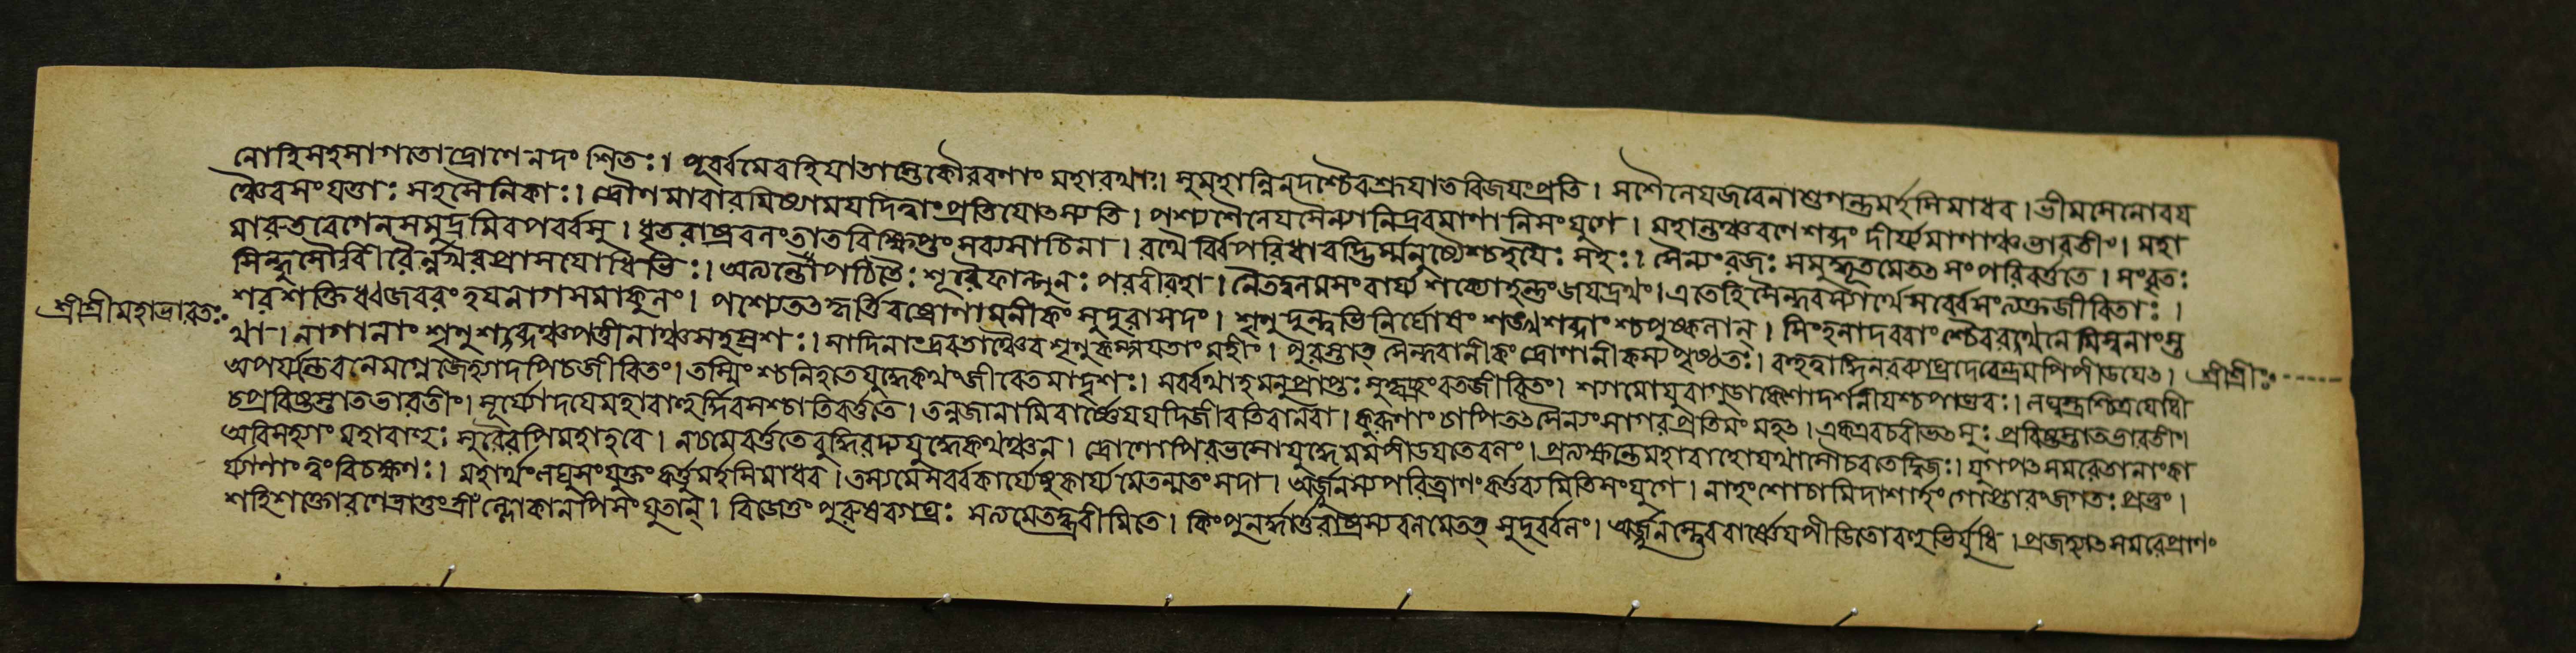 নোহিসহসাগতোদ্রোণেনদংশিতঃ। পূর্ব্বমেবহিযাতাস্তেকৌরবাণাং মহারথাঃ। সুমহান্নিনদশ্চৈবশ্রূযতেবিজযংপ্রতি। সশৈনেযজবেনাশুগন্তুমর্হসিমাধব। ভীমসেনোবয
ঞ্চৈবসংযত্তাঃ সহসৈনিকাঃ। দ্রোণমাবারযিষ্যামযদিত্বাংপ্রতিযোৎস্যতি। পশ্যশৈনেযসৈন্যানিদ্রবমাণানিসংযুগে। মহান্তঞ্চরণেশব্দং দীর্য্যমাণাঞ্চভারতীং। মহা
মারুতবেগেনসমুদ্রমিবপর্ব্বসু। ধৃতরাষ্ট্রবলংতাতবিক্ষিপ্তংসব্যসাচিনা। রথৈর্বিপরিধাবদ্ভির্ম্মনুষ্যৈশ্চহযৈঃ সহঃ। সৈন্যংরজঃ সমুদ্ধূতমেতৎ সংপরিবর্ত্ততে। সংবৃতঃ
সিন্ধুসৌবীরৈর্নখরপ্রাসযোধিভিঃ। অত্যন্তোপচিতৈঃ শূরৈঃফাল্গুনঃ পরবীরহা। নৈতদ্বলমসংবার্য্যশক্যোহন্তুংজযদ্রথং। এতেহিসৈন্ধবস্যার্থেসর্ব্বেসংত্যক্তজীবিতাঃ।
শরশক্তিধ্বজবরংহযনাগসমাকুলং। পশ্যৈতৎধার্ত্তরাষ্ট্রাণামনীকং সুদুরাসদং। শৃণুদুন্দুভিনির্ঘোষং শঙ্খশব্দাংশ্চপুষ্কলান্। সিংহনাদরবাংশ্চৈবরথনেমিস্বনাংস্ত
শ্রীশ্রীমহাভারতঃ
থা। নাগানাং শৃণুশব্দঞ্চপত্তীনাঞ্চসহস্রশঃ। সাদিনাংদ্রবতাঞ্চৈবশৃণুকম্পযতাং মহীং। পুরস্তাৎ সৈন্ধবানীকংদ্রোণানীকস্যপৃষ্ঠতঃ। বহুত্বাদ্ধিনরব্যাঘ্রদেবেন্দ্রমপিপীডযেৎ।
শ্রীশ্রীঃ
অপর্য্যন্তেবলেমগ্নোজহ্যাদপিচজীবিতং। তস্মিংশ্চনিহতেযুদ্ধেকথংজীবেতমাদৃশঃ। সর্ব্বথাহমনুপ্রাপ্তঃ সুকৃচ্ছ্রংবতজীবিতং। শ্যামোযুবাগুডাকেশোদর্শনীযশ্চপাণ্ডবঃ। লঘ্বস্ত্রশ্চিত্রযোধী
চপ্রবিষ্টস্তাতভারতীং। সূর্য্যোদযেমহাবাহুর্দ্দিবসশ্চাতিবর্ত্ততে। তন্নজানামিবার্ষ্ণেযযদিজীবতিবানবা। কুরূণাং চাপিতৎসৈন্যংসাগরপ্রতিমং মহৎ। একএবচবীভৎসুঃ প্রবিষ্টস্তাতভারতীং।
অবিসহ্যাং মহাবাহুঃ সুরৈরপিমহাহবে। নচমেবর্ত্ততেবুদ্ধিরদ্যযুদ্ধেকথঞ্চন। দ্রোণোপিরভসোযুদ্ধেমমপীডযতেবলং। প্রত্যক্ষন্তেমহাবাহোযথাসৌচরতেদ্বিজঃ। যুগপৎসমবেতানাংকা
র্য্যাণাং ত্বংবিচক্ষণঃ। মহার্থংলঘুসংযুক্তং কর্ত্তুমর্হসিমাধব। তস্যমেসর্ব্বকার্য্যেষুকার্য্যমেতন্মতংসদা। অর্জ্জুনস্যপরিত্রাণংকর্ত্তব্যমিতিসংযুগে। নাহংশোচামিদাশার্হংগোপ্তারংজগতঃ প্রভুং।
শহিশক্তোরণেতাতত্রীঁল্লোকানপিসংযুতান্। বিজেতুং পুরুষব্যাঘ্রঃ সত্যমেতদ্ব্রবীমিতে। কিংপুনর্দ্ধার্ত্তরাষ্ট্রস্যবলমেতৎ সুদুর্ব্বলং। অর্জ্জুনস্ত্বেববার্ষ্ণেযপীডিতোবহুভির্যুধি। প্রজহ্যাৎসমরেপ্রাণং